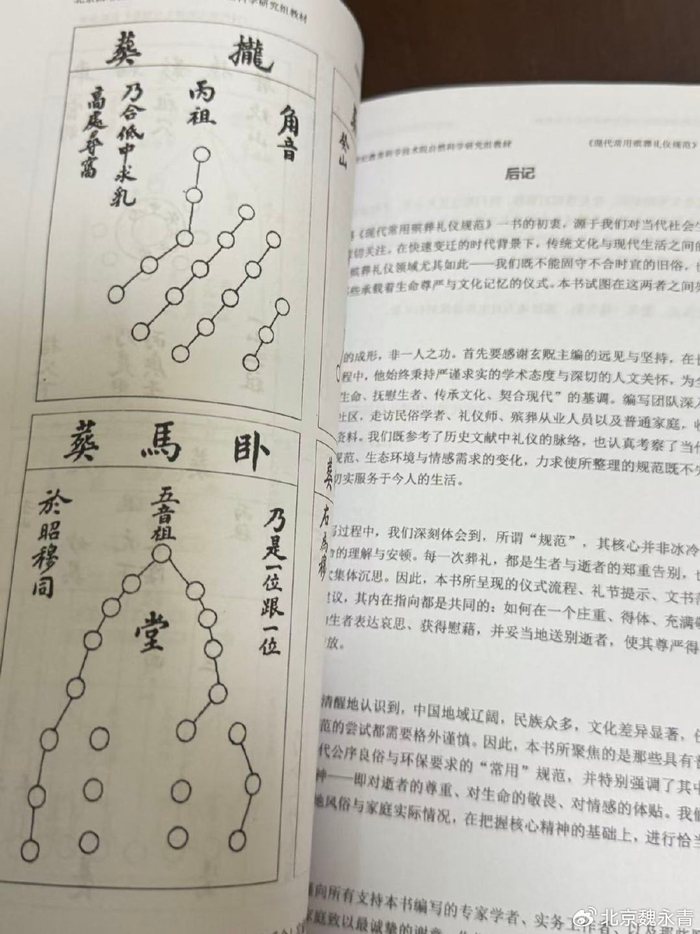 学研究组教材
葬攏
角音
丙祖
乃合低中求乳
高處尋窩
葬馬卧
乃是一位跟一位
五音祖
堂
於昭穆同
登山
葬
左馬移
技术院自然科学研究组教材
《现代常用殡葬礼仪规范》
后记
《现代常用殡葬礼仪规范》一书的初衷，源于我们对当代社会生
切关注。在快速变迁的时代背景下，传统文化与现代生活之间的
殡葬礼仪领域尤其如此——我们既不能固守不合时宜的旧俗，
些承载着生命尊严与文化记忆的仪式。本书试图在这两者之间
的成形，非一人之功。首先要感谢玄贶主编的远见与坚持，在
程中，他始终秉持严谨求实的学术态度与深切的人文关怀，为全
生命、抚慰生者、传承文化、契合现代”的基调。编写团队深入
社区，走访民俗学者、礼仪师、殡葬从业人员以及普通家庭，收
资料。我们既参考了历史文献中礼仪的脉络，也认真考察了当代
规范、生态环境与情感需求的变化，力求使所整理的规范既不
切实服务于今人的生活。
写过程中，我们深刻体会到，所谓“规范”，其核心并非冰冷
命的理解与安顿。每一次葬礼，都是生者与逝者的郑重告别，也
次集体沉思。因此，本书所呈现的仪式流程、礼节提示、文书
建议，其内在指向都是共同的：如何在一个庄重、得体、充满
生者表达哀思、获得慰藉，并妥当地送别逝者，使其尊严得
放。
清醒地认识到，中国地域辽阔，民族众多，文化差异显著，任
范的尝试都需要格外谨慎。因此，本书所聚焦的是那些具有普
代公序良俗与环保要求的“常用”规范，并特别强调了其中
神——即对逝者的尊重、对生命的敬畏、对情感的体贴。我们
地风俗与家庭实际情况，在把握核心精神的基础上，进行恰当
向所有支持本书编写的专家学者、实务工作者、以及那些
家庭致以最诚挚的谢意。
@北京魏永青